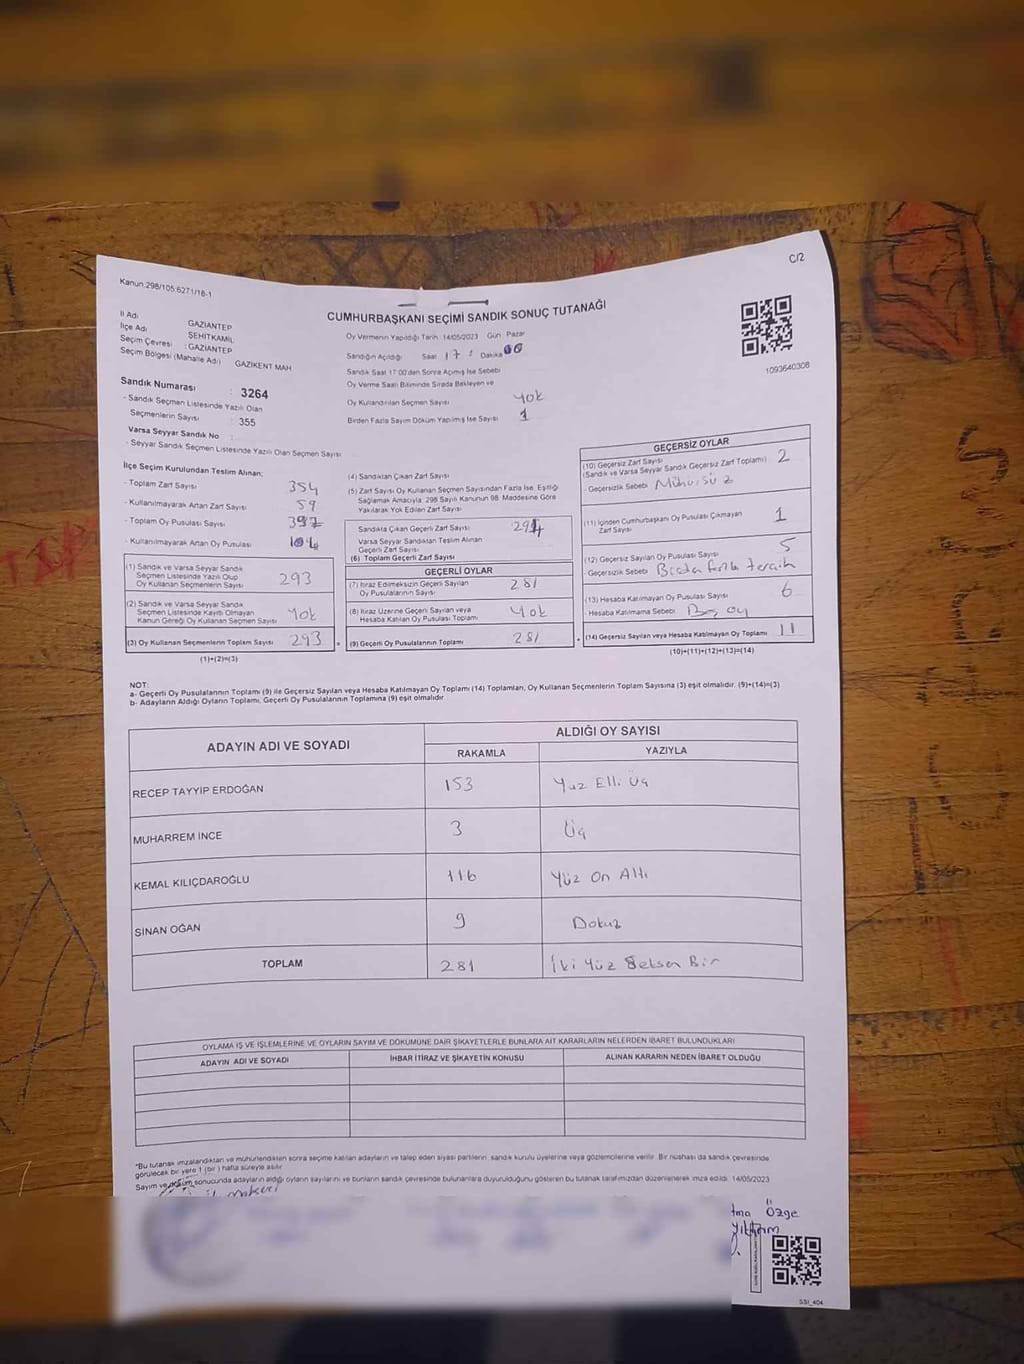 C/2
Kanun:298/105 6271/18-1
CUMHURBAŞKANI SEÇİMİ SANDIK SONUÇ TUTANAĞI
İl Adı : GAZİANTEP
İlçe Adı : ŞEHİTKAMİL
Seçim Çevresi : GAZİANTEP
Seçim Bölgesi (Mahalle Adı) : GAZİKENT MAH
Sandık Numarası : 3264
- Sandık Seçmen Listesinde Yazılı Olan
Seçmenlerin Sayısı : 355
Varsa Seyyar Sandık No :
- Seyyar Sandık Seçmen Listesinde Yazılı Olan Seçmen Sayısı :
Oy Vermenin Yapıldığı Tarih : 14/05/2023 Gün : Pazar
Sandığın Açıldığı Saat 17 : Dakika 00
Sandık Saat 17:00'den Sonra Açılmış İse Sebebi
Oy Verme Saati Bitiminde Sırada Bekleyen ve
Oy Kullandırılan Seçmen Sayısı Yok
Birden Fazla Sayım Döküm Yapılmış İse Sayısı 1
1093640308
İlçe Seçim Kurulundan Teslim Alınan;
- Toplam Zarf Sayısı 354
- Kullanılmayarak Artan Zarf Sayısı 59
- Toplam Oy Pusulası Sayısı
- Kullanılmayarak Artan Oy Pusulası
(1) Sandık ve Varsa Seyyar Sandık
Seçmen Listesinde Yazılı Olup
Oy Kullanan Seçmenlerin Sayısı 293
(2) Sandık ve Varsa Seyyar Sandık
Seçmen Listesinde Kayıtlı Olmayan
Kanun Gereği Oy Kullanan Seçmen Sayısı Yok
(3) Oy Kullanan Seçmenlerin Toplam Sayısı 293
(1)+(2)=(3)
(4) Sandıktan Çıkan Zarf Sayısı
(5) Zarf Sayısı Oy Kullanan Seçmen Sayısından Fazla İse, Eşitliği
Sağlamak Amacıyla; 298 Sayılı Kanunun 98. Maddesine Göre
Yakılarak Yok Edilen Zarf Sayısı
Sandıkta Çıkan Geçerli Zarf Sayısı
Varsa Seyyar Sandıktan Teslim Alınan
Geçerli Zarf Sayısı
(6) Toplam Geçerli Zarf Sayısı
GEÇERLİ OYLAR
(7) İtiraz Edilmeksizin Geçerli Sayılan
Oy Pusulalarının Sayısı 281
(8) İtiraz Üzerine Geçerli Sayılan veya
Hesaba Katılan Oy Pusulası Toplamı Yok
(9) Geçerli Oy Pusulalarının Toplamı 281
GEÇERSİZ OYLAR
(10) Geçersiz Zarf Sayısı
(Sandık ve Varsa Seyyar Sandık Geçersiz Zarf Toplamı) 2
- Geçersizlik Sebebi Mühürsüz
(11) İçinden Cumhurbaşkanı Oy Pusulası Çıkmayan
Zarf Sayısı 1
(12) Geçersiz Sayılan Oy Pusulası Sayısı 5
- Geçersizlik Sebebi : Birden fazla tercih
(13) Hesaba Katılmayan Oy Pusulası Sayısı 6
- Hesaba Katılmama Sebebi : Boş oy
(14) Geçersiz Sayılan veya Hesaba Katılmayan Oy Toplamı 11
(10)+(11)+(12)+(13)=(14)
NOT:
a- Geçerli Oy Pusulalarının Toplamı (9) ile Geçersiz Sayılan veya Hesaba Katılmayan Oy Toplamı (14) Toplamları, Oy Kullanan Seçmenlerin Toplam Sayısına (3) eşit olmalıdır. (9)+(14)=(3)
b- Adayların Aldığı Oyların Toplamı, Geçerli Oy Pusulalarının Toplamına (9) eşit olmalıdır.
ADAYIN ADI VE SOYADI
ALDIĞI OY SAYISI
RAKAMLA YAZIYLA
RECEP TAYYİP ERDOĞAN 153 Yüz Elli Üç
MUHARREM İNCE 3 Üç
KEMAL KILIÇDAROĞLU 116 Yüz On Altı
SİNAN OĞAN 9 Dokuz
TOPLAM 281 İki Yüz Seksen Bir
OYLAMA İŞ VE İŞLEMLERİNE VE OYLARIN SAYIM VE DÖKÜMÜNE DAİR ŞİKAYETLERLE BUNLARA AİT KARARLARIN NELERDEN İBARET BULUNDUKLARI
ADAYIN ADI VE SOYADI İHBAR İTİRAZ VE ŞİKAYETİN KONUSU ALINAN KARARIN NEDEN İBARET OLDUĞU
*Bu tutanak imzalandıktan ve mühürlendikten sonra seçime katılan adayların ve talep eden siyasi partilerin sandık kurulu üyelerine veya gözlemcilerine verilir. Bir nüshası da sandık çevresinde
görülecek bir yere 1 (bir ) hafta süreyle asılır.
Sayım ve döküm sonucunda adayların aldığı oyların sayılarını ve bunların sandık çevresinde bulunanlara duyurulduğunu gösteren bu tutanak tarafımızdan düzenlenerek imza edildi. 14/05/2023
Özge
Yıldırım
SSI_404